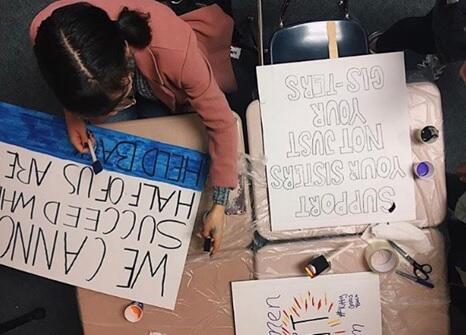 WE CANNO
SUCCEED WHE
HALF OF US ARE
HELD BA
SUPPORT
YOUR SISTERS
NOT JUST
YOUR
CIS-TERS
men